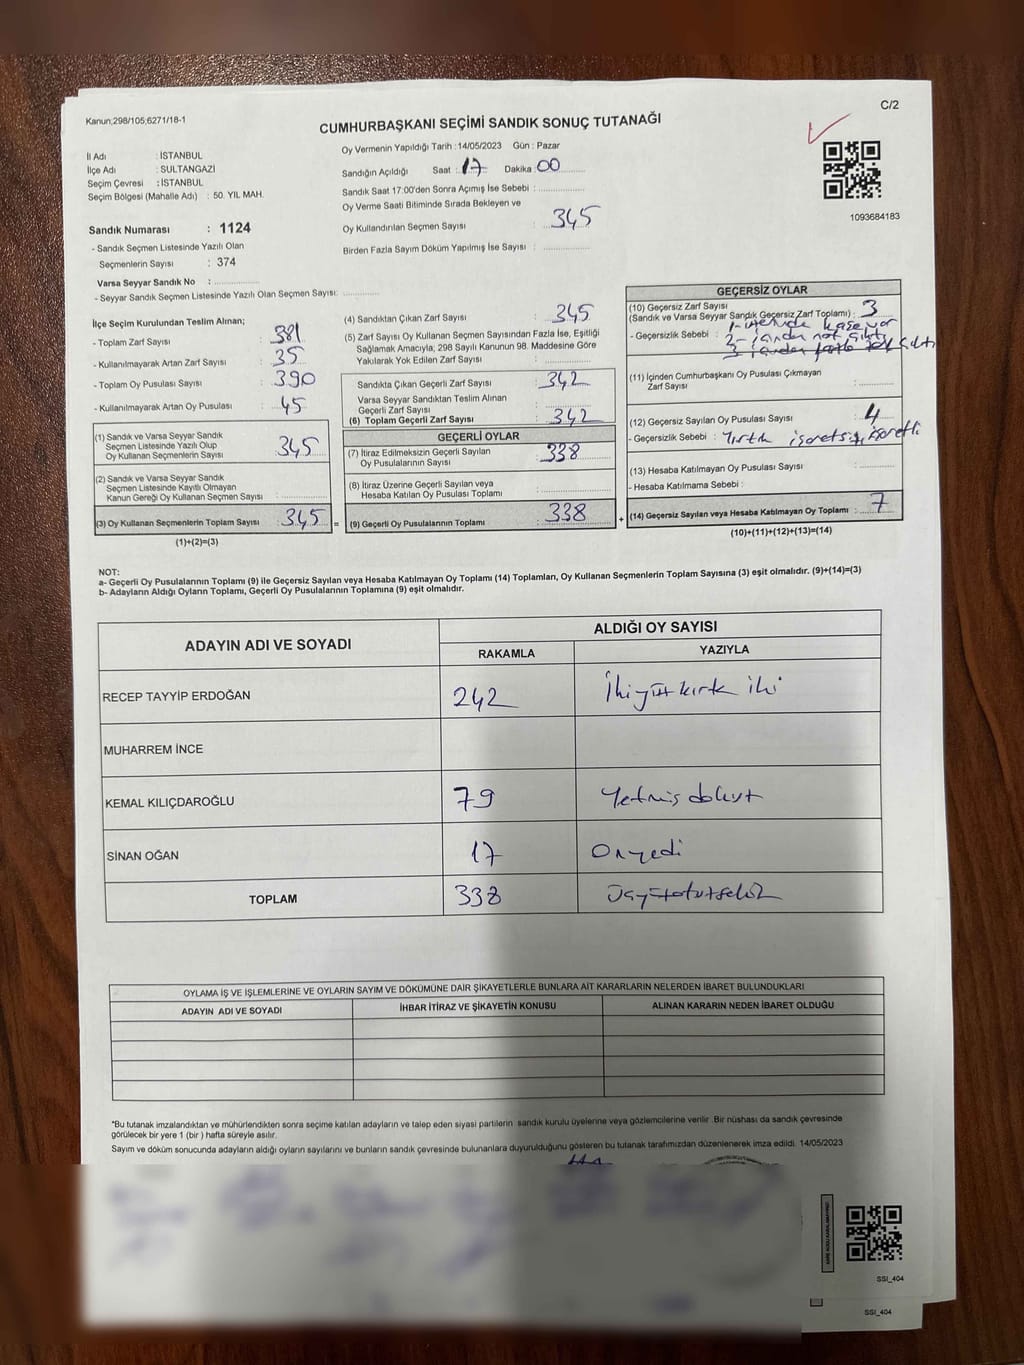 C/2
Kanun;298/105,6271/18-1
CUMHURBAŞKANI SEÇİMİ SANDIK SONUÇ TUTANAĞI
İl Adı : İSTANBUL
İlçe Adı : SULTANGAZİ
Seçim Çevresi : İSTANBUL
Seçim Bölgesi (Mahalle Adı) : 50. YIL MAH.
Sandık Numarası : 1124
- Sandık Seçmen Listesinde Yazılı Olan
Seçmenlerin Sayısı : 374
Varsa Seyyar Sandık No :
- Seyyar Sandık Seçmen Listesinde Yazılı Olan Seçmen Sayısı:
Oy Vermenin Yapıldığı Tarih : 14/05/2023 Gün : Pazar
Sandığın Açıldığı Saat : 17 Dakika : 00
Sandık Saat 17:00'den Sonra Açımış İse Sebebi :
Oy Verme Saati Bitiminde Sırada Bekleyen ve
Oy Kullandırılan Seçmen Sayısı : 345
Birden Fazla Sayım Döküm Yapılmış İse Sayısı :
1093684183
İlçe Seçim Kurulundan Teslim Alınan;
- Toplam Zarf Sayısı : 381
- Kullanılmayarak Artan Zarf Sayısı : 35
- Toplam Oy Pusulası Sayısı : 390
- Kullanılmayarak Artan Oy Pusulası : 45
(1) Sandık ve Varsa Seyyar Sandık
Seçmen Listesinde Yazılı Olup
Oy Kullanan Seçmenlerin Sayısı : 345
(2) Sandık ve Varsa Seyyar Sandık
Seçmen Listesinde Kayıtlı Olmayan
Kanun Gereği Oy Kullanan Seçmen Sayısı :
(3) Oy Kullanan Seçmenlerin Toplam Sayısı : 345 =
(1)+(2)=(3)
(4) Sandıktan Çıkan Zarf Sayısı : 345
(5) Zarf Sayısı Oy Kullanan Seçmen Sayısından Fazla İse, Eşitliği
Sağlamak Amacıyla, 298 Sayılı Kanunun 98. Maddesine Göre
Yakılarak Yok Edilen Zarf Sayısı :
Sandıkta Çıkan Geçerli Zarf Sayısı : 342
Varsa Seyyar Sandıktan Teslim Alınan
Geçerli Zarf Sayısı :
(6) Toplam Geçerli Zarf Sayısı : 342
GEÇERLİ OYLAR
(7) İtiraz Edilmeksizin Geçerli Sayılan
Oy Pusulalarının Sayısı : 338
(8) İtiraz Üzerine Geçerli Sayılan veya
Hesaba Katılan Oy Pusulası Toplamı :
(9) Geçerli Oy Pusulalarının Toplamı : 338 +
GEÇERSİZ OYLAR
(10) Geçersiz Zarf Sayısı
(Sandık ve Varsa Seyyar Sandık Geçersiz Zarf Toplamı) : 3
- Geçersizlik Sebebi : 1- kaşe var
2- içinden not çıktı
(11) İçinden Cumhurbaşkanı Oy Pusulası Çıkmayan
Zarf Sayısı :
(12) Geçersiz Sayılan Oy Pusulası Sayısı : 4
- Geçersizlik Sebebi : Yırtık işaretsiz, işaretli
(13) Hesaba Katılmayan Oy Pusulası Sayısı :
- Hesaba Katılmama Sebebi :
(14) Geçersiz Sayılan veya Hesaba Katılmayan Oy Toplamı : 7
(10)+(11)+(12)+(13)=(14)
NOT:
a- Geçerli Oy Pusulalarının Toplamı (9) ile Geçersiz Sayılan veya Hesaba Katılmayan Oy Toplamı (14) Toplamları, Oy Kullanan Seçmenlerin Toplam Sayısına (3) eşit olmalıdır. (9)+(14)=(3)
b- Adayların Aldığı Oyların Toplamı, Geçerli Oy Pusulalarının Toplamına (9) eşit olmalıdır.
ADAYIN ADI VE SOYADI
ALDIĞI OY SAYISI
RAKAMLA YAZIYLA
RECEP TAYYİP ERDOĞAN 242 İkiyüzkırk iki
MUHARREM İNCE
KEMAL KILIÇDAROĞLU 79 Yetmiş dokuz
SİNAN OĞAN 17 Onyedi
TOPLAM 338 Üçyüzotuzsekiz
OYLAMA İŞ VE İŞLEMLERİNE VE OYLARIN SAYIM VE DÖKÜMÜNE DAİR ŞİKAYETLERLE BUNLARA AİT KARARLARIN NELERDEN İBARET BULUNDUKLARI
ADAYIN ADI VE SOYADI İHBAR İTİRAZ VE ŞİKAYETİN KONUSU ALINAN KARARIN NEDEN İBARET OLDUĞU
*Bu tutanak imzalandıktan ve mühürlendikten sonra seçime katılan adayların ve talep eden siyasi partilerin sandık kurulu üyelerine veya gözlemcilerine verilir. Bir nüshası da sandık çevresinde
görülecek bir yere 1 (bir) hafta süreyle asılır.
Sayım ve döküm sonucunda adayların aldığı oyların sayılarını ve bunların sandık çevresinde bulunanlara duyurulduğunu gösteren bu tutanak tarafımızdan düzenlenerek imza edildi. 14/05/2023
SSI_404
SSI_404